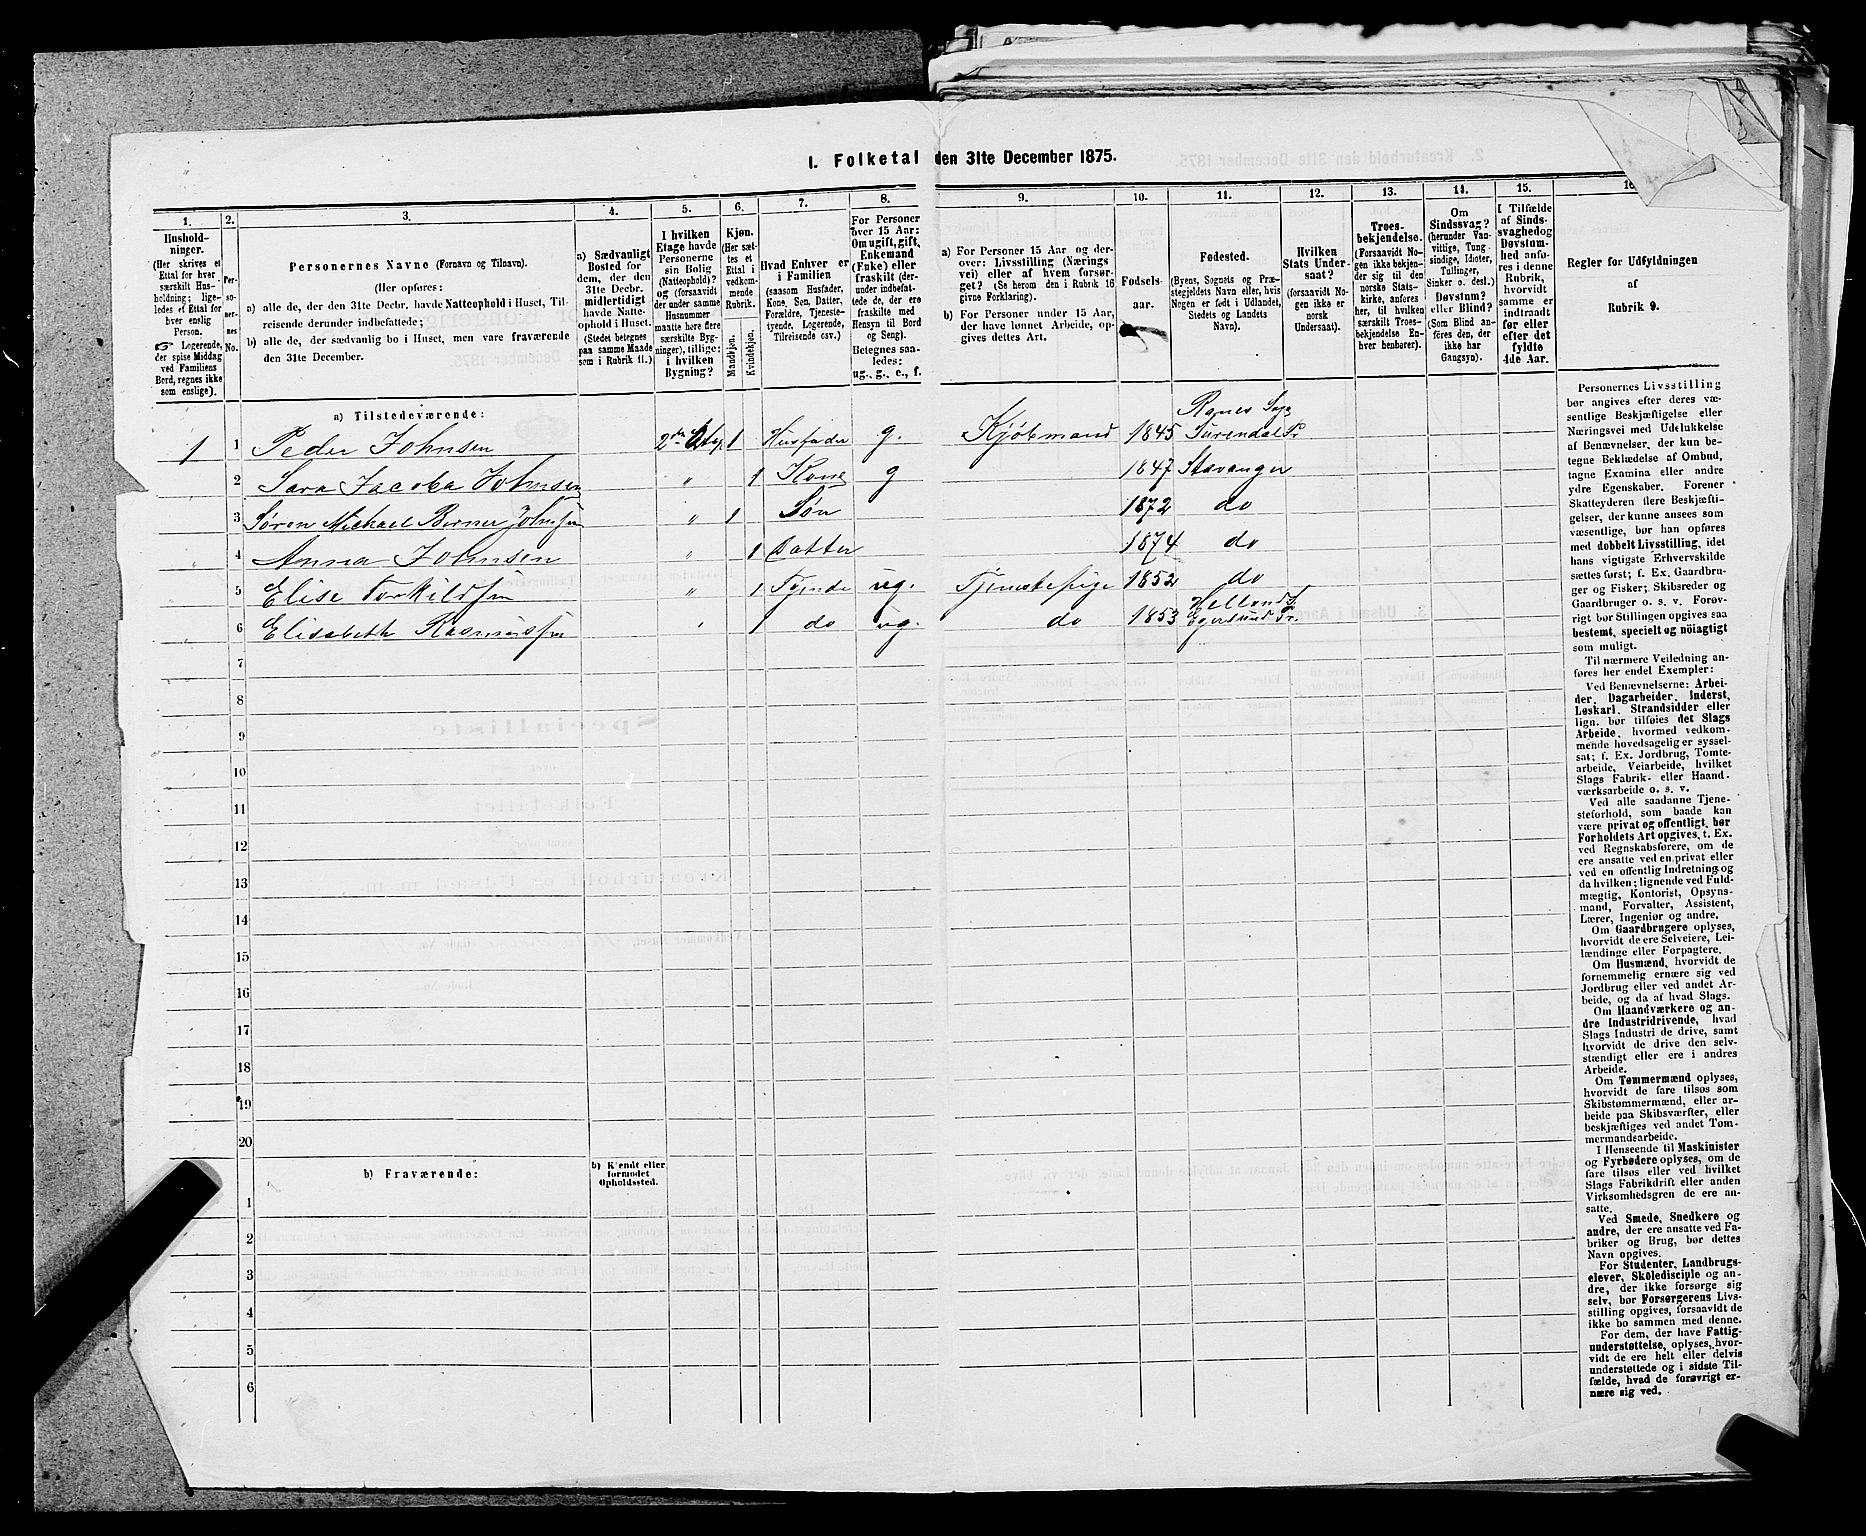 1. Folketal den 31te December 1875.
1. 2. 3. 4. 5. 6. 7. 8. 9. 10. 11. 12. 13. 14. 15. 16.
Hushold-
ninger.
(Her skrives et
Ettal for hver
særskilt Hus-
holdning; lige-
ledes et Ettal for
hver enslig
Person.
☞ Logerende,
der spise Middag
ved Familiens
Bord, regnes ikke
som enslige).
Per-
so-
ner-
nes
No.
Personernes Navne (Fornavn og Tilnavn).
(Her opføres:
a) alle de, der den 31te Decbr. havde Natteophold i Huset, Til-
reisende derunder indbefattede;
b) alle de, der sædvanlig bo i Huset, men vare fraværende
den 31te December.
a) Sædvanligt
Bosted for
dem, der den
31te Decbr.
midlertidigt
havde Natte-
ophold i Huset.
(Stedet betegnes
paa samme Maade
som i Rubrik 11.)
I hvilken
Etage havde
Personerne
sin Bolig
(Natteophold)?
og (forsaavidt
der under samme
Husnummer
maatte høre flere
særskilte Byg-
ninger), tillige:
i hvilken
Bygning?
Kjøn.
(Her sæt-
tes et
Ettal i
vedkom-
mende
Rubrik.
Mandkjøn.
Kvindekjøn.
Hvad Enhver er
i Familien
(saasom Husfader,
Kone, Søn, Datter,
Forældre, Tjeneste-
tyende, Logerende,
Tilreisende osv.)
For Personer
over 15 Aar:
Om ugift, gift,
Enkemand
(Enke) eller
fraskilt (der-
under indbefat-
tede de, der ere
fraskilte med
Hensyn til Bord
og Seng).
Betegnes saa-
ledes:
ug., g., e., f.
a) For Personer 15 Aar og der-
over: Livsstilling (Nærings
vei) eller af hvem forsør-
get? (Se herom den i Rubrik 16
givne Forklaring).
b) For Personer under 15 Aar,
der have lønnet Arbeide, op-
gives dettes Art.
Fødsels-
aar.
Fødested.
(Byens, Sognets og Præ-
stegjeldets Navn eller, hvis
Nogen er født i Udlandet,
Stedets og Landets
Navn).
Hvilken
Stats Under-
saat?
(forsaavidt No-
gen ikke er
norsk
Undersaat).
Troes-
bekjendelse.
(Forsaavidt No-
gen ikke bekjen-
der sig til den
norske Stats-
kirke, anføres
her, til hvilken
særskilt Troes-
bekjendelse En-
hver henhører).
Om
Sindssvag?
(herunder Van-
vittige, Tung-
sindige, Idioter,
Tullinger,
Sinker o. desl.)
Døvstum?
eller Blind?
(Som Blind an-
føres den, der
ikke har
Gangsyn).
I Tilfælde
af Sinds-
svaghed og
Døvstum-
hed anfø-
res i denne
Rubrik,
hvorvidt
samme er
indtraadt
før eller
efter det
fyldte
4de Aar.
Regler for Udfyldningen
af
Rubrik 9.
a) Tilstedeværende:
1 1 Peder Johnsen 2den Etage 1 Husfader g. Kjøbmand 1845 Ranes Sogn Surendal Pr
2 Sara Jacoba Johnsen " 1 Kone g 1847 Stavanger
3 Søren Michael Berner Johnsen " 1 Søn 1872 do
4 Anna Johnsen " 1 Datter 1874 do
5 Elise Torkildsen " 1 Tyende ug. Tjenestepige 1852 do
6 Elisabeth Rasmussen " 1 do ug. do 1853 Hellands S. Egersund Pr.
7
8
9
10
11
12
13
14
15
16
17
18
19
20
b) Fraværende:
b) Kjendt eller
formodet
Opholdssted.
1
2
3
4
5
6
Personernes Livsstilling
bør angives efter deres væ-
sentlige Beskjæftigelse eller
Næringsvei med Udelukkelse
af Benævnelser, der kun be-
tegne Beklædelse af Ombud,
tagne Examina eller andre
ydre Egenskaber. Forener
Skatteyderen flere Beskjæfti-
gelser, der kunne ansees som
væsentlige, bør han opføres
med dobbelt Livsstilling, idet
hans vigtigste Erhvervskilde
sættes først; f. Ex. Gaardbru-
ger og Fisker; Skibsreder og
Gaardbruger o. s. v. Forøv-
rigt bør Stillingen opgives saa
bestemt, specielt og nöiagtigt
som muligt.
Til nærmere Veiledning an-
føres her endel Exempler:
Ved Benævnelserne: Arbei-
der, Dagarbeider, Inderst,
Løskarl, Strandsidder eller
lign. bør tilføies det Slags
Arbeide, hvormed vedkom-
mende hovedsagelig er syssel-
sat; f. Ex. Jordbrug, Tomte-
arbeide, Veiarbeide, hvilket
Slags Fabrik- eller Haand-
værksarbeide o. s. v.
Ved alle saadanne Tjene-
steforhold, som baade kan
være privat og offentligt, bør
Forholdets Art opgives, t. Ex.
ved Regnskabsførere, om de
ere ansatte ved en privat eller
ved en offentlig Indretning og
da hvilken; lignende ved Fuld-
mægtig, Kontorist, Opsyns-
mand, Forvalter, Assistent,
Lærer, Ingeniør og andre.
Om Gaardbrugere oplyses,
hvorvidt de ere Selveiere, Lei-
lændinge eller Forpagtere.
Om Husmænd, hvorvidt de
fornemmelig ernære sig ved
Jordbrug eller ved andet Ar-
beide, og da af hvad Slags.
Om Haandværkere og an-
dre Industridrivende, hvad
Slags Industri de drive, samt
hvorvidt de drive den selv-
stændigt eller ere i andres
Arbeide.
Om Tømmermænd oplyses,
hvorvidt de fare tilsøs som
Skibstømmermænd, eller ar-
beide paa Skibsværfter, eller
beskjæftiges ved andet Tøm-
mermandsarbeide.
I Henseende til Maskinister
og Fyrbødere oplyses, om de
fare tilsøs eller ved hvilket
Slags Fabrikdrift eller anden
Virksomhedsgren de ere an-
satte.
Ved Smede, Snedkere og
andre, der ere ansatte ved Fa-
briker og Brug, bør dettes
Navn opgives.
For Studenter, Landbrugs-
elever, Skoledisciple og an-
dre, der ikke forsørge sig
selv, bør Forsørgerens Livs-
stilling opgives, forsaavidt de
ikke bo sammen med denne.
For dem, der have Fattig-
understøttelse, oplyses, hvor-
vidt de ere helt eller delvis
understøttede og i sidste Til-
fælde, hvad de forøvrigt er-
nære sig ved.